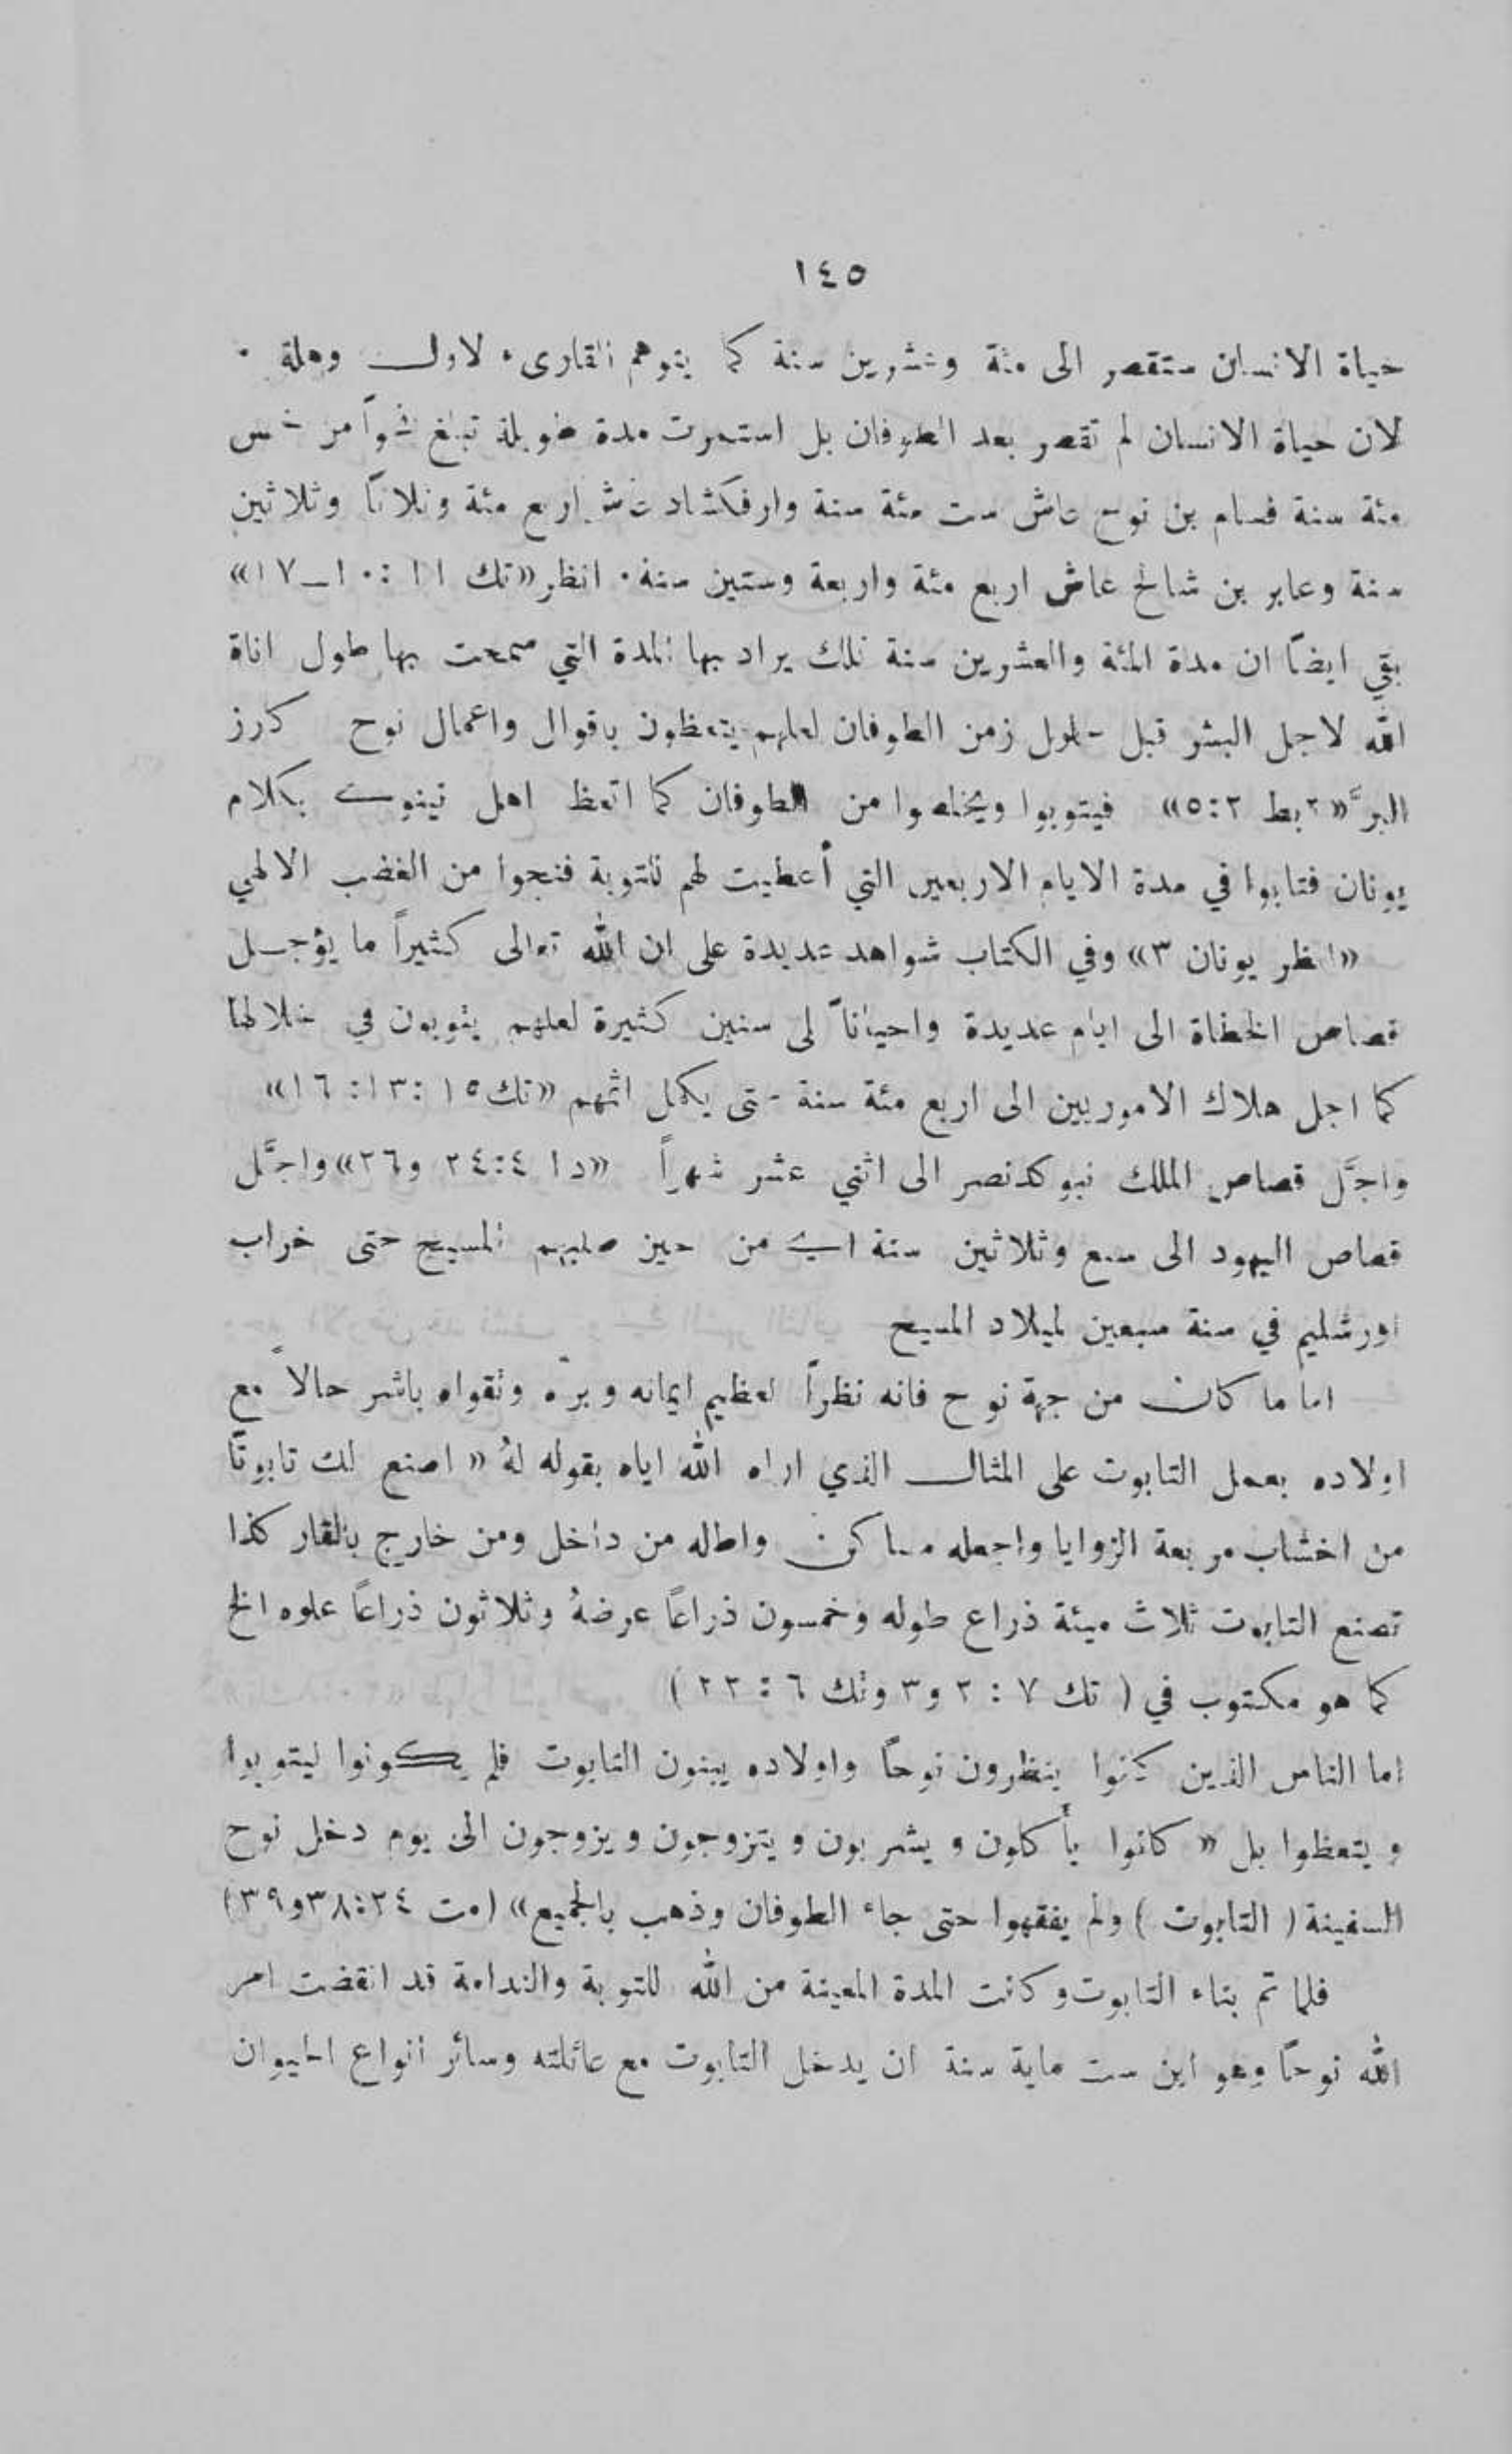 ١٤٥
حياة الانسان ستقصر الى مئة وعشرين سنة كما يتوهم القارىء لاول وهلة ·
لان حياة الانسان لم تقصر بعد الطوفان بل استمرت مدة طويلة تبلغ نحواً من خمس
مئة سنة فسام بن نوح عاش ست مئة سنة وارفكشاد عاش اربع مئة وثلاثاً وثلاثين
سنة وعابر بن شالح عاش اربع مئة واربعة وستين سنة · انظر «تك ١١ : ١٠ــ١٧»
بقي ايضاً ان مدة المئة والعشرين سنة تلك يراد بها المدة التي سمحت بها طول اناة
الله لاجل البشر قبل حلول زمن الطوفان لعلهم يتعظون باقوال واعمال نوح كارز
البرّ «٢ بط ٢:٥» فيتوبوا ويخلصوا من الطوفان كما اتعظ اهل نينوى بكلام
يونان فتابوا في مدة الايام الاربعين التي أعطيت لهم للتوبة فنجوا من الغضب الالهي
«انظر يونان ٣» وفي الكتاب شواهد عديدة على ان الله تعالى كثيراً ما يؤجــل
قصاص الخطاة الى ايام عديدة واحياناً الى سنين كثيرة لعلهم يتوبون في خلالها
كما اجل هلاك الاموريين الى اربع مئة سنة حتى يكمل اثمهم «تك ١٥ :١٣: ١٦»
واجَّل قصاص الملك نبوكدنصر الى اثني عشر شهراً «دا ٤:٢٤ و٢٦» واجَّل
قصاص اليهود الى سبع وثلاثين سنة اي من حين صلبهم المسيح حتى خراب
اورشليم في سنة سبعين لميلاد المسيح
اما ما كان من جهة نوح فانه نظراً لعظيم ايمانه وبرّه وتقواه باشر حالاً مع
اولاده بعمل التابوت على المثال الذي اراه الله اياه بقوله لهُ « اصنع لك تابوتاً
من اخشاب مربعة الزوايا واجعله مساكن واطاله من داخل ومن خارج بالقار كذا
تصنع التابوت ثلاث ميئة ذراع طوله وخمسون ذراعاً عرضهُ وثلاثون ذراعاً علوه الخ
كما هو مكتوب في ( تك ٧ : ٢ و٣ وتك ٦ : ٢٢ )
اما الناس الذين كانوا ينظرون نوحاً واولاده يبنون التابوت فلم يكونوا ليتوبوا
و يتعظوا بل « كانوا يأكلون و يشربون و يتزوجون و يزوجون الى يوم دخل نوح
السفينة ( التابوت ) ولم يفقهوا حتى جاء الطوفان وذهب بالجميع» (مت ٢٤:٣٨و٣٩)
فلما تم بناء التابوت وكانت المدة المعينة من الله للتوبة والندامة قد انقضت امر
الله نوحاً وهو ابن ست ماية سنة ان يدخل التابوت مع عائلته وسائر انواع الحيوان